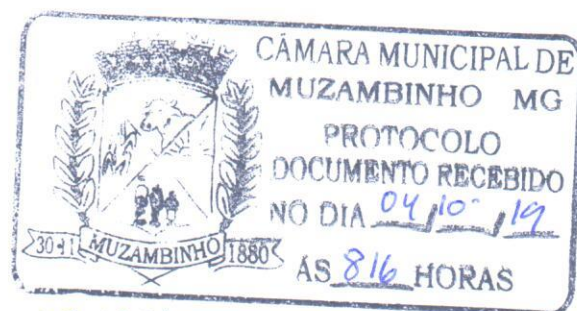 CÂMARA MUNICIPAL DE
MUZAMBINHO MG
PROTOCOLO
DOCUMENTO RECEBIDO
NO DIA 04/10/19
ÀS 816 HORAS
30-11 MUZAMBINHO 1880